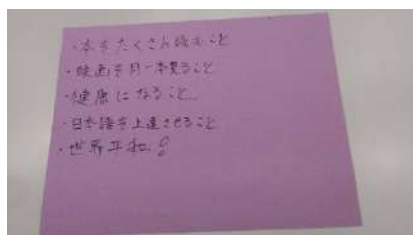 ・本をたくさん読むこと
・映画を月一本見ること
・健康になること
・日本語を上達させること
・世界平和